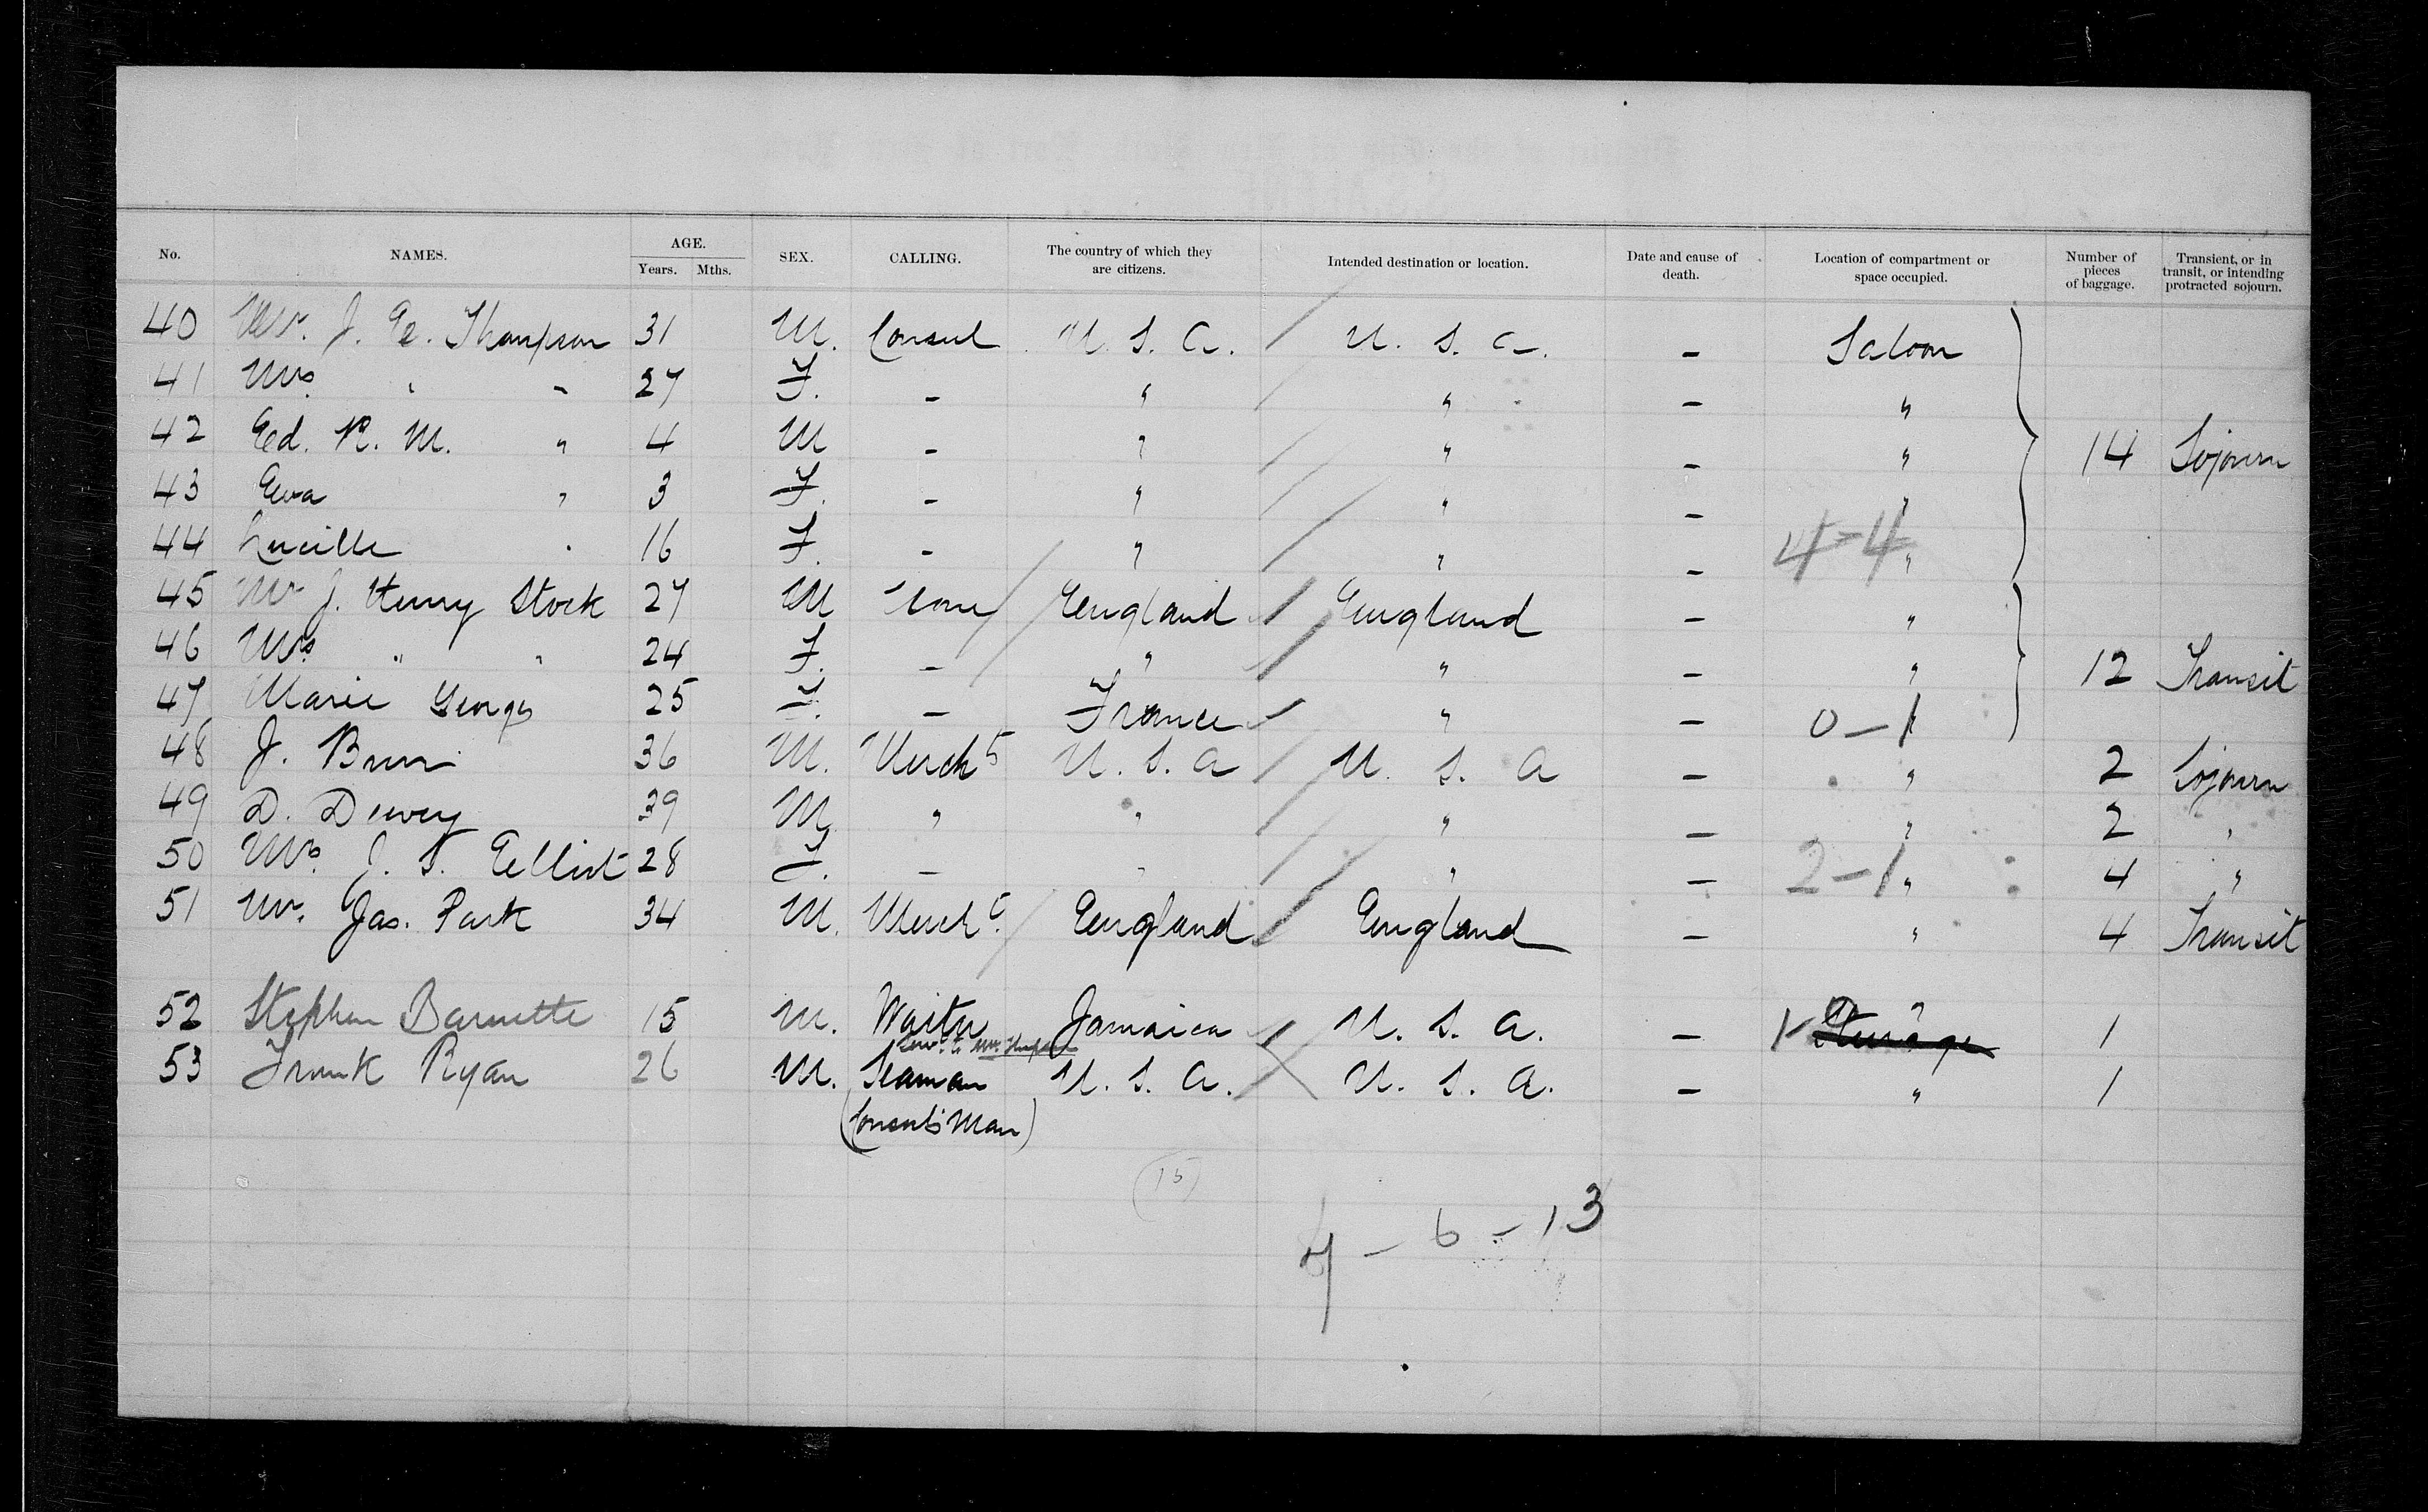 No. NAMES. AGE. Years. Mths. SEX. CALLING. The country of which they are citizens. Intended destination or location. Date and cause of death. Location of compartment or space occupied. Number of pieces of baggage. Transient, or in transit, or intending protracted sojourn.
40 Mr. J. E. Thompson 31 M. Consul U. S. A. U. S. A. - Saloon
41 Mrs. " " 27 F. - " " - "
42 Ed. R. M. " 4 M - " " - " 14 Sojourn
43 Eva " 3 F. - " " - "
44 Lucille " 16 F. - " " - 4-4 "
45 Mr J. Henry Stock 27 M None England England - "
46 Mrs. " " 24 F. - " " - " 12 Transit
47 Marie Georges 25 F. - France " - 0-1 "
48 J. 36 M. Mercht U. S. A U. S. A - " 2 Sojourn
49 D. Dewey 39 M. " " " - " 2 "
50 Mrs. J. S. Elliot 28 F. - " " - 2-1 " 4 "
51 Mr. Jas. Park 34 M. Mercht. England England - " 4 Transit
52 Stephen Barnette 15 M. Waiter Jamaica U. S. A. - 1- Steerage " 1
Serv. to Mr. Thompson
53 Frank Ryan 26 M. Seaman U. S. A. U. S. A. - " 1
(Consul's Man)
(15)
4 - 6 - 13